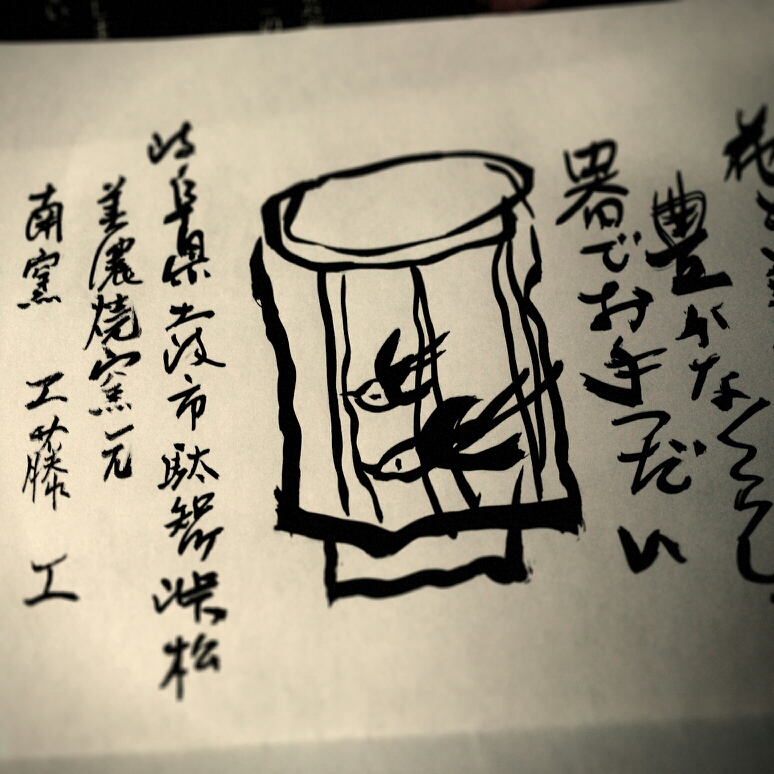 豊かなくらし
器でお手つだい
岐阜県土岐市駄智 松
美濃焼窯元
南窯 工藤 工